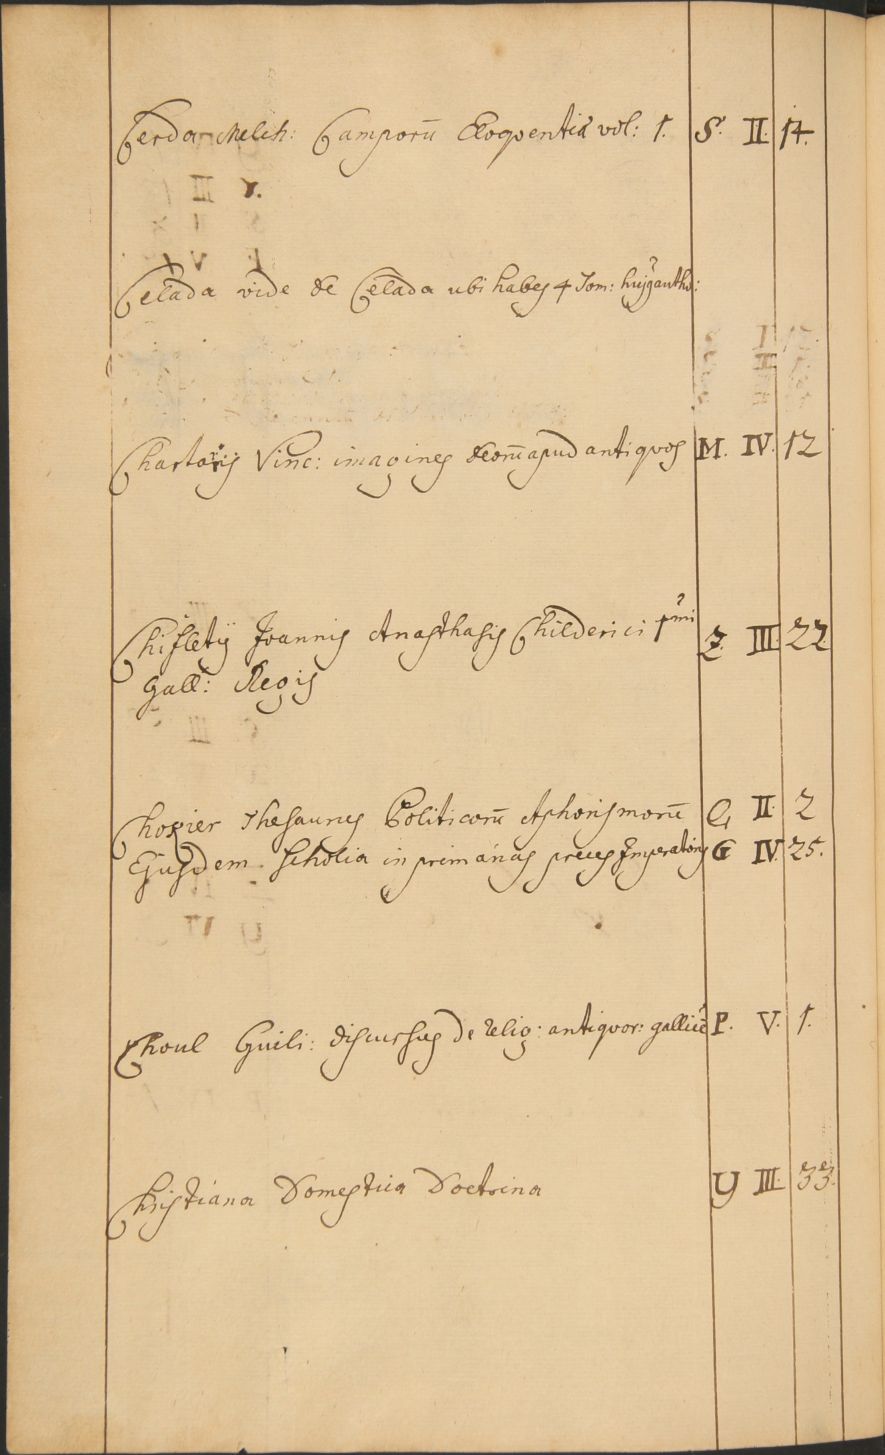 Cerda Melch: Camporū Eloquentiæ vol: 1. S. II. 14.
Celada vide de Celada ubi habes 4 Tom: hujg
Chartarij Vinc: imagines deorū apud antiquos M. IV. 12
Chifletij Joannis Anasthasis Childerici 1mi Z. III. 22
Gall: Regis
Chokier Thesaurus Politicorū Aphorismorū G II. 2
Ejusdem Scholia in primanas preces Imperatoris G IV. 25.
Choul Guili: discursus de relig: antiquor: gallicè P. V. 1.
Christiana Domestica Doctrina Y III. 33.